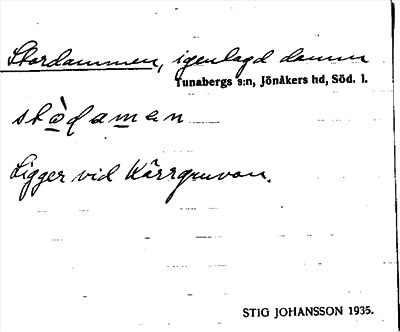 Stordammen, igenlagd damm
Tunabergs s:n, Jönåkers hd, Söd. l.
Ligger vid Kärrgruvan.
STIG JOHANSSON 1935.